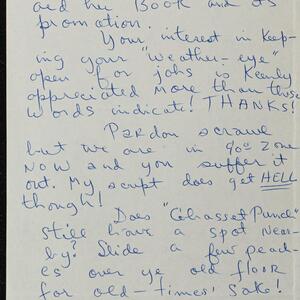 and her Book and its
promotion.
Your interest in keep-
ing your "weather-eye"
open for jobs is keenly
appreciated more than these
words indicate! THANKS!
Pardon scrawl
but we are in 90° zone
NOW and you suffer it
out. My script does get HELL
though!
Does "Cohasset Punch"
still have a spot near-
by? Slide a few peach-
es over ye old floor
for old-times' sake!